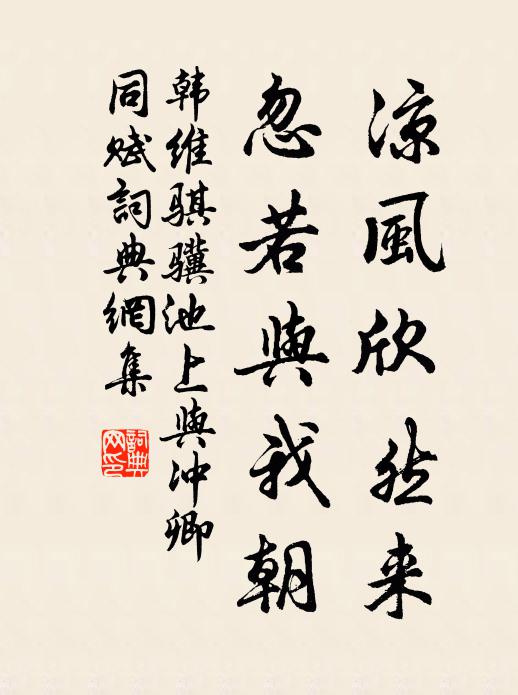 涼風欣然来
忽若與我朝
韩维骐骥池上與冲卿
同赋詞典網集
詞典
网印